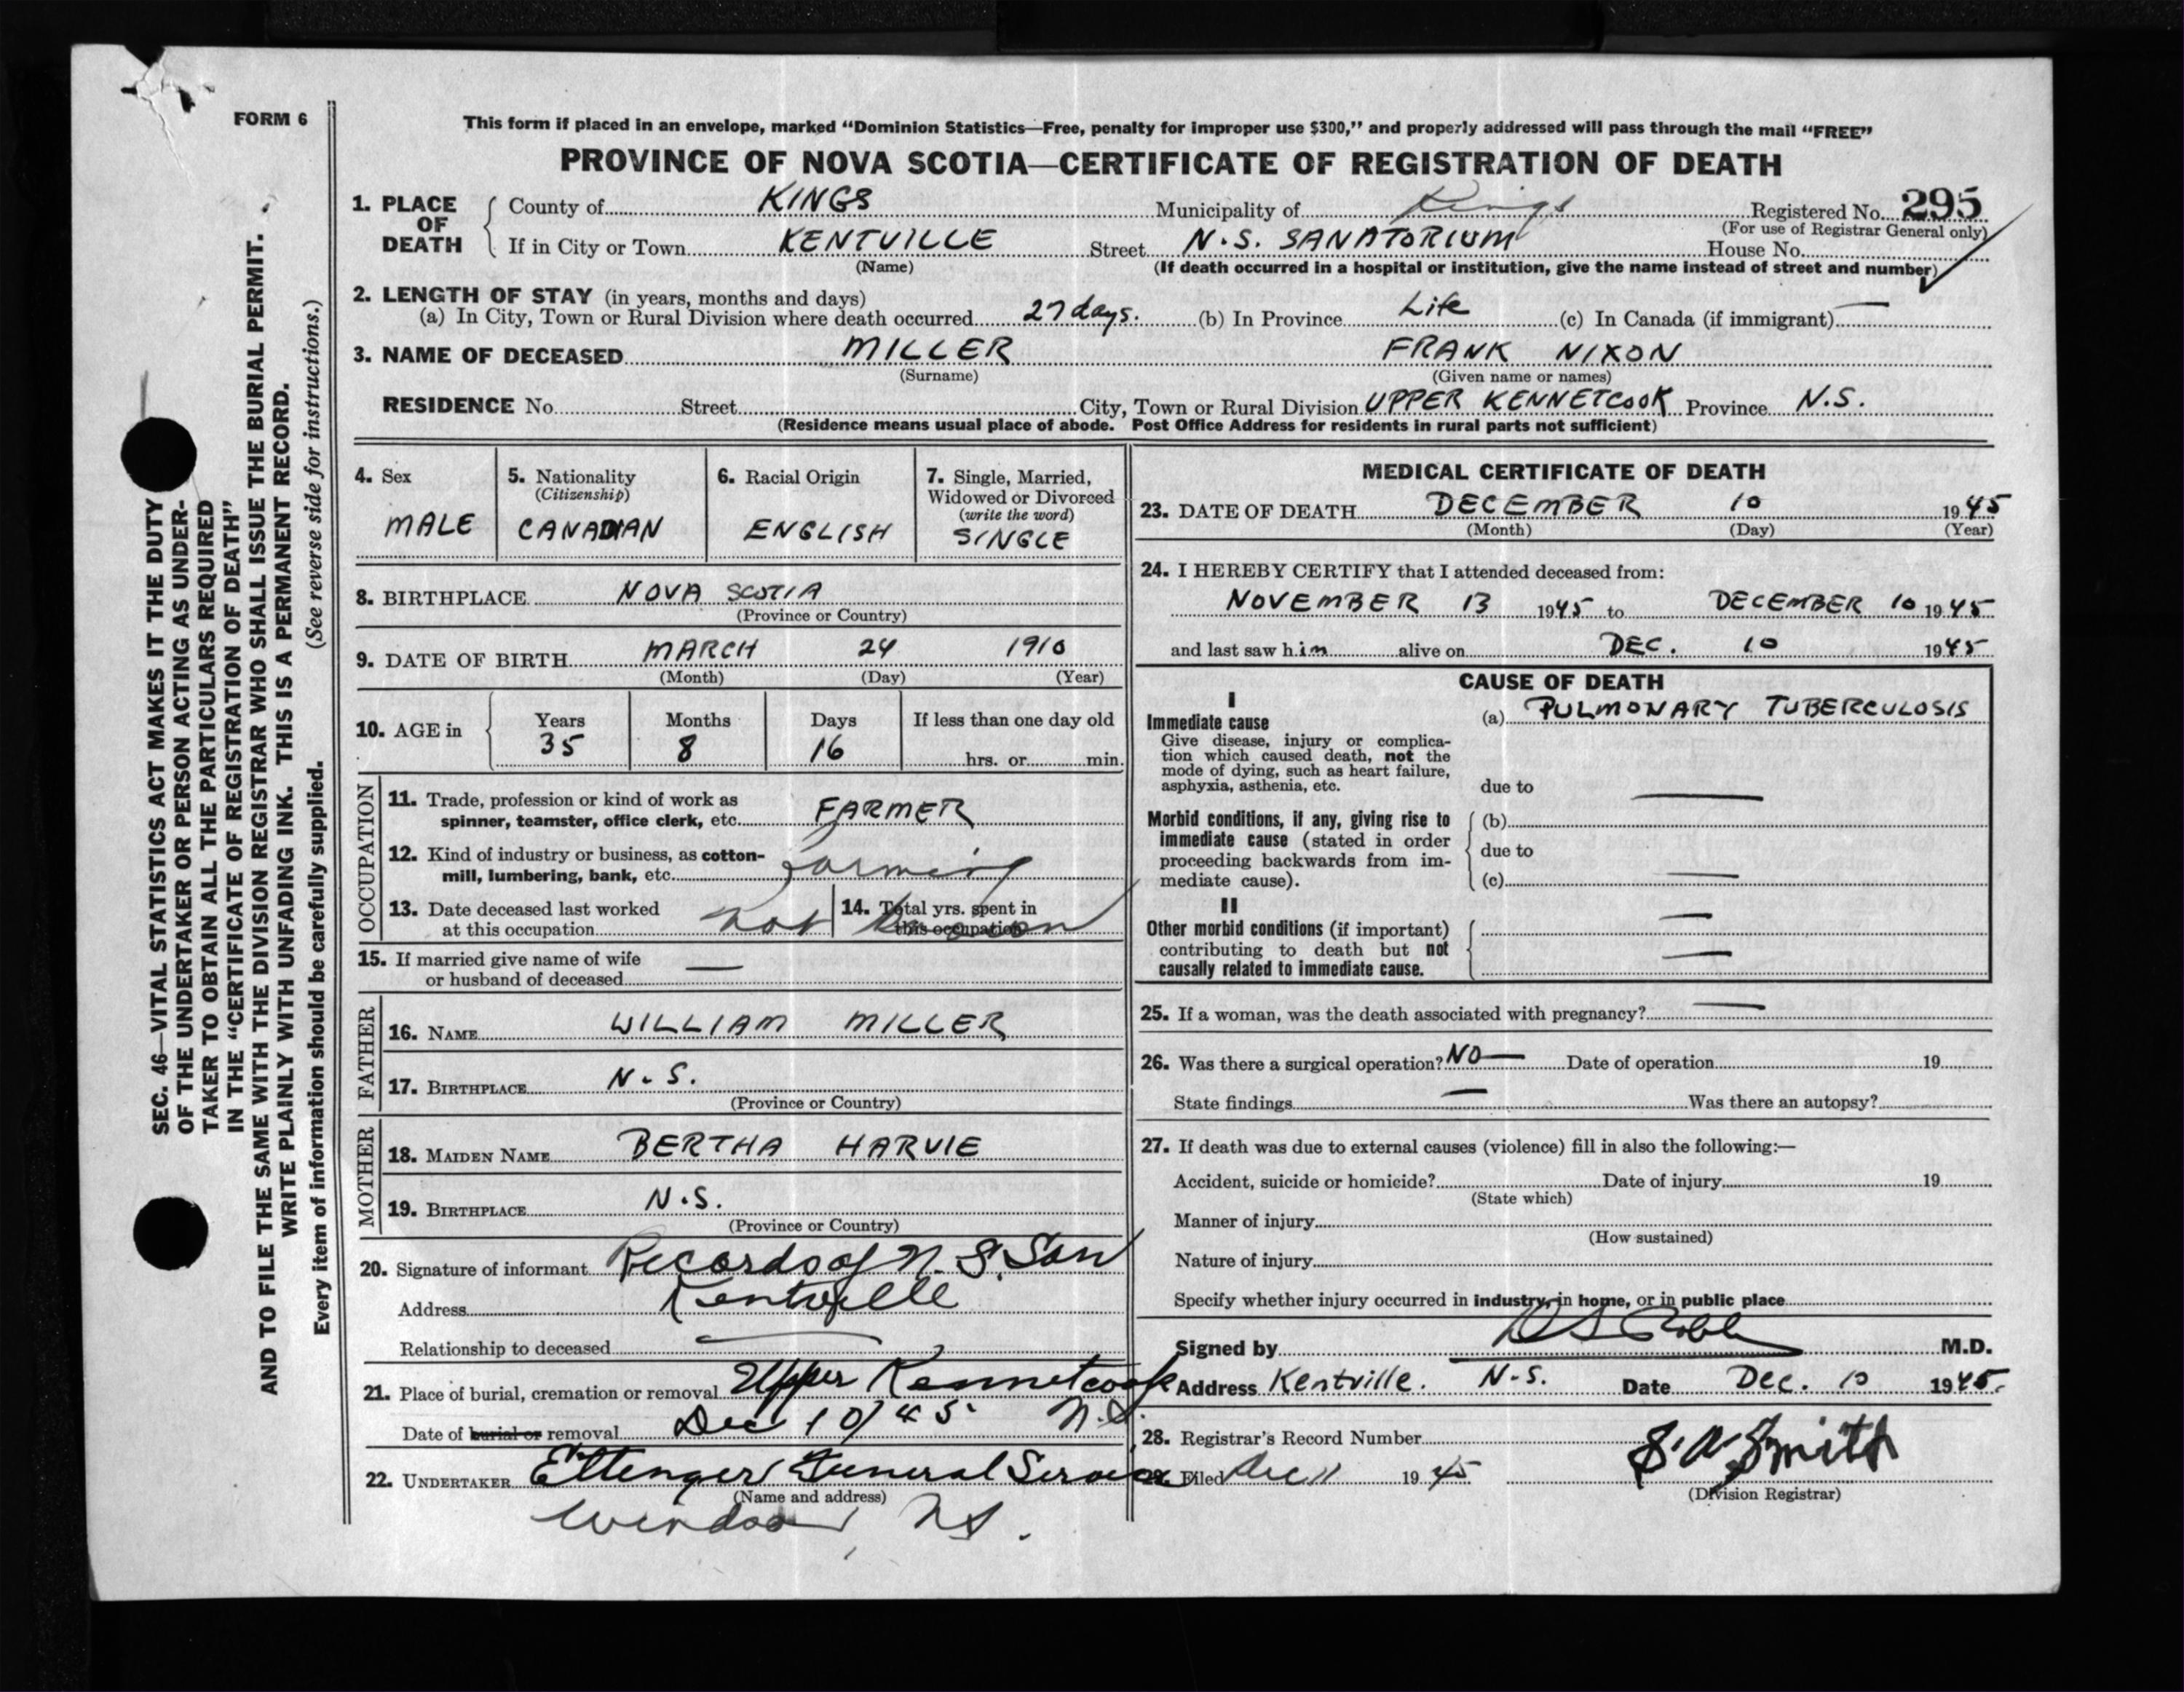 FORM 6
This form if placed in an envelope, marked “Dominion Statistics—Free, penalty for improper use $300,” and properly addressed will pass through the mail “FREE”
PROVINCE OF NOVA SCOTIA—CERTIFICATE OF REGISTRATION OF DEATH
1. PLACE OF DEATH
County of KINGS Municipality of Kings Registered No. 295
(For use of Registrar General only)
If in City or Town KENTVILLE Street N.S. SANATORIUM House No.
(Name) (If death occurred in a hospital or institution, give the name instead of street and number)
2. LENGTH OF STAY (in years, months and days)
(a) In City, Town or Rural Division where death occurred 27 days. (b) In Province Life (c) In Canada (if immigrant) —
3. NAME OF DECEASED MILLER FRANK NIXON
(Surname) (Given name or names)
RESIDENCE No. Street City, Town or Rural Division UPPER KENNETCOOK Province N.S.
(Residence means usual place of abode. Post Office Address for residents in rural parts not sufficient)
4. Sex
MALE
5. Nationality
(Citizenship)
CANADIAN
6. Racial Origin
ENGLISH
7. Single, Married,
Widowed or Divorced
(write the word)
SINGLE
8. BIRTHPLACE NOVA SCOTIA
(Province or Country)
9. DATE OF BIRTH MARCH 24 1910
(Month) (Day) (Year)
10. AGE in
Years Months Days If less than one day old
35 8 16 hrs. or min.
OCCUPATION
11. Trade, profession or kind of work as
spinner, teamster, office clerk, etc. FARMER
12. Kind of industry or business, as cotton-
mill, lumbering, bank, etc. farming
13. Date deceased last worked
at this occupation not known
14. Total yrs. spent in
this occupation
15. If married give name of wife
or husband of deceased —
FATHER
16. NAME WILLIAM MILLER
17. BIRTHPLACE N.S.
(Province or Country)
MOTHER
18. MAIDEN NAME BERTHA HARVIE
19. BIRTHPLACE N.S.
(Province or Country)
20. Signature of informant Records of N.S. San
Address Kentville
Relationship to deceased —
21. Place of burial, cremation or removal Upper Kennetcook
N.S.
Date of burial or removal Dec 10/45
22. UNDERTAKER Ettenger Funeral Service
(Name and address)
Windsor, NS.
MEDICAL CERTIFICATE OF DEATH
23. DATE OF DEATH DECEMBER 10 1945
(Month) (Day) (Year)
24. I HEREBY CERTIFY that I attended deceased from:
NOVEMBER 13 1945 to DECEMBER 10 1945
and last saw him alive on DEC. 10 1945
CAUSE OF DEATH
I
Immediate cause
Give disease, injury or complica-
tion which caused death, not the
mode of dying, such as heart failure,
asphyxia, asthenia, etc.
(a) PULMONARY TUBERCULOSIS
due to —
Morbid conditions, if any, giving rise to
immediate cause (stated in order
proceeding backwards from im-
mediate cause).
(b)
due to
(c) —
II
Other morbid conditions (if important)
contributing to death but not
causally related to immediate cause.
—
—
25. If a woman, was the death associated with pregnancy? —
26. Was there a surgical operation? NO — Date of operation 19
State findings — Was there an autopsy?
27. If death was due to external causes (violence) fill in also the following:—
Accident, suicide or homicide? Date of injury 19
(State which)
Manner of injury
(How sustained)
Nature of injury
Specify whether injury occurred in industry, in home, or in public place
Signed by M.D.
Address Kentville. N.S. Date Dec. 10 1945.
28. Registrar's Record Number
29. Filed Dec 11 1945 Smith
(Division Registrar)
SEC. 46—VITAL STATISTICS ACT MAKES IT THE DUTY
OF THE UNDERTAKER OR PERSON ACTING AS UNDER-
TAKER TO OBTAIN ALL THE PARTICULARS REQUIRED
IN THE “CERTIFICATE OF REGISTRATION OF DEATH”
AND TO FILE THE SAME WITH THE DIVISION REGISTRAR WHO SHALL ISSUE THE BURIAL PERMIT.
WRITE PLAINLY WITH UNFADING INK. THIS IS A PERMANENT RECORD.
Every item of information should be carefully supplied. (See reverse side for instructions.)